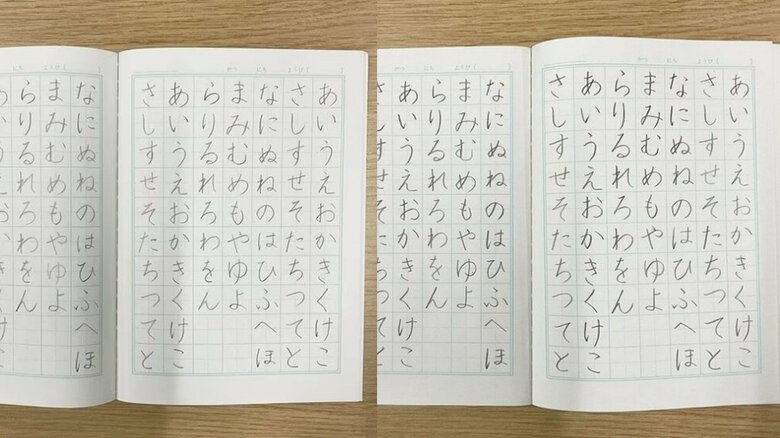 がつ にち ようび( )
あいうえおかきくけこ
さしすせそたちつてと
なにぬねのはひふへほ
まみむめもやゆよ
らりるれろわをん
あいうえおかきくけこ
さしすせそたちつてと
にち ようび( )
なにぬねのはひふへほ
まみむめもやゆよ
らりるれろわをん
がつ にち ようび( )
あいうえおかきくけこ
さしすせそたちつてと
なにぬねのはひふへほ
まみむめもやゆよ
らりるれろわをん
あいうえおかきくけこ
さしすせそたちつてと
がつ にち ようび( )
なにぬねのはひふへほ
まみむめもやゆよ
らりるれろわをん
あいうえおかきくけこ